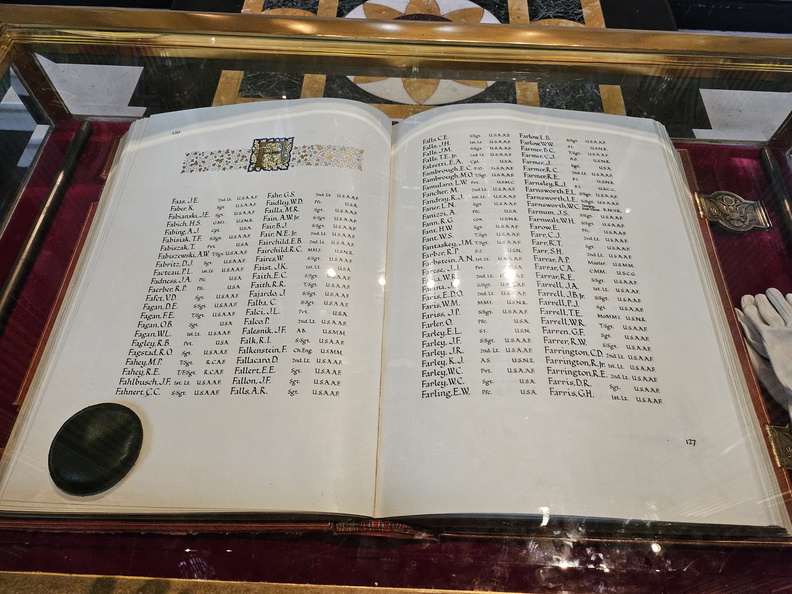 126
F
Faas, J.E. 2nd. Lt. U.S.A.A.F.
Faber, K. Sgt. U.S.A.A.F.
Fabianski, J.E. Sgt. U.S.A.A.F.
Fabich, H.S. U.S.N.R.
Fabing, A.J. Cpl. U.S.A.
Fabisiak, T.F. S/Sgt. U.S.A.A.F.
Fabiszak, T. Pvt. U.S.A.
Fabiszewski, A.W. T/Sgt. U.S.A.A.F.
Fabritz, D.J. Sgt. U.S.A.A.F.
Facteau, P.L. 1st. Lt. U.S.A.A.F.
Fadness, J.A. Pfc. U.S.A.
Faerber, R.P. Pfc. U.S.A.
Fafet, V.D. Sgt. U.S.A.A.F.
Fagan, D.E. S/Sgt. U.S.A.A.F.
Fagan, F.E. T/Sgt. U.S.A.A.F.
Fagan, O.B. Sgt. U.S.A.
Fagan, W.L. 1st. Lt. U.S.A.A.F.
Fagley, R.B. Pvt. U.S.A.
Fagstad, R.O. Sgt. U.S.A.A.F.
Fahey, M.P. T/Sgt. R.C.A.F.
Fahey, R.E. T/F/Sgt. R.C.A.F.
Fahlbusch, J.F. 1st. Lt. U.S.A.A.F.
Fahnert, C.C. S/Sgt. U.S.A.A.F.
Fahr, G.S. 2nd. Lt. U.S.A.A.F.
Faidley, W.D. Pfc. U.S.A.
Failla, M.R. Sgt. U.S.A.A.F.
Fain, A.W. Jr. S/Sgt. U.S.A.A.F.
Fair, B.J. S/Sgt. U.S.A.A.F.
Fair, N.E. Jr. 2nd. Lt. U.S.A.A.F.
Fairchild, E.B. 2nd. Lt. U.S.A.A.F.
Fairchild, R.C. U.S.N.R.
Faires, W. S/Sgt. U.S.A.A.F.
Faist, J.K. 1st. Lt. U.S.A.A.F.
Faith, E.C. S/Sgt. U.S.A.A.F.
Faith, R.R. T/Sgt. U.S.A.A.F.
Fajardo, J. S/Sgt. U.S.A.A.F.
Falba, C. S/Sgt. U.S.A.A.F.
Falci, J.L. Pvt. U.S.A.
Falco, P. 2nd. Lt. U.S.A.A.F.
Falesnik, J.F. A.B. U.S.M.M.
Falk, R.L. S/Sgt. U.S.A.A.F.
Falkenstein, F. Ch.Eng. U.S.M.M.
Fallacaro, D. 2nd. Lt. U.S.A.A.F.
Fallert, E.E. Sgt. U.S.A.A.F.
Fallon, J.F. Sgt. U.S.A.A.F.
Falls, A.R. Sgt. U.S.A.A.F.
Falls, C.E. S/Sgt. U.S.A.A.F.
Falls, J.H. 1st. Lt. U.S.A.A.F.
Falls, J.M. S/Sgt. U.S.A.A.F.
Falls, T.E. Jr. 2nd. Lt. U.S.A.A.F.
Falzetti, E.A. Cpl. U.S.A.
Fambrough, E.C. F/O U.S.A.A.F.
Fambrough, M.O. T/Sgt. U.S.A.A.F.
Famularo, L.W. Pvt. U.S.M.C.
Fancher, M. 2nd. Lt. U.S.A.A.F.
Fandray, R.J. 1st. Lt. U.S.A.A.F.
Faner, L.N. Sgt. U.S.A.A.F.
Fanizzi, A. Pfc. U.S.A.
Fann, R.G. Cox. U.S.N.
Fant, H.W. Sgt. U.S.A.A.F.
Fant, W.S. T/Sgt. U.S.A.A.F.
Fantaskey, J.M. T/Sgt. U.S.A.A.F.
Farber, R.P. S.1. U.S.N.R.
Farbstein, A.N. 1st. Lt. U.S.A.A.F.
Farese, J.J. Pvt. U.S.A.
Faria, W.R. U.S.A.A.F.
Farina, J. U.S.A.A.F.
Faris, E.D.O. 2nd. Lt. U.S.A.A.F.
Faris, W.M. U.S.N.
Fariss, J.P. S/Sgt. U.S.A.A.F.
Farler, O. Pfc. U.S.A.
Farley, E.L. S.1. U.S.N.
Farley, J.F. S/Sgt. U.S.A.A.F.
Farley, J.R. 2nd. Lt. U.S.A.A.F.
Farley, K.J. A.S. U.S.N.R.
Farley, W.C. Pvt. U.S.A.A.F.
Farley, W.C. Sgt. U.S.A.
Farling, E.W. Pfc. U.S.A.
Farlow, L.B. S/Sgt. U.S.A.A.F.
Farlow, W.W. S.1. U.S.N.R.
Farmer, B.C. T/Sgt. U.S.A.A.F.
Farmer, C.J. A.S. U.S.N.
Farmer, J. Pfc. U.S.A.
Farmer, R.C. 2nd. Lt. U.S.A.A.F.
Farmer, R.E. S.1. U.S.N.R.
Farnaley, R.J. U.S.C.G.
Farnsworth, E.L. S/Sgt. U.S.A.A.F.
Farnsworth, I.E. S/Sgt. U.S.A.A.F.
Farnsworth, W.C. R.N.V.R.
Farnum, J.S. S/Sgt. U.S.A.A.F.
Farnwalt, W.H. S/Sgt. U.S.A.A.F.
Farow, E. Pfc. U.S.A.
Farr, C.J. 2nd. Lt. U.S.A.A.F.
Farr, K.T. Sgt. U.S.A.A.F.
Farr, S.H. 2nd. Lt. U.S.A.A.F.
Farrar, A.P. Master U.S.M.M.
Farrar, C.A. C.M.M. U.S.C.G.
Farrell, J.A. 1st. Lt. U.S.A.A.F.
Farrell, J.B. Jr. S/Sgt. U.S.A.A.F.
Farrell, P.J. Sgt. U.S.A.A.F.
Farrell, T.E. MoMM.1. U.S.N.R.
Farrell, W.R. T/Sgt. U.S.A.A.F.
Farren, G.F. Sgt. U.S.A.A.F.
Farrer, R.W. S/Sgt. U.S.A.A.F.
Farrington, C.D. 2nd. Lt. U.S.A.A.F.
Farrington, R. Jr. 1st. Lt. U.S.A.A.F.
Farrington, R.E. 2nd. Lt. U.S.A.A.F.
Farris, D.R. Sgt. U.S.A.A.F.
Farris, G.H. 1st. Lt. U.S.A.A.F.
127